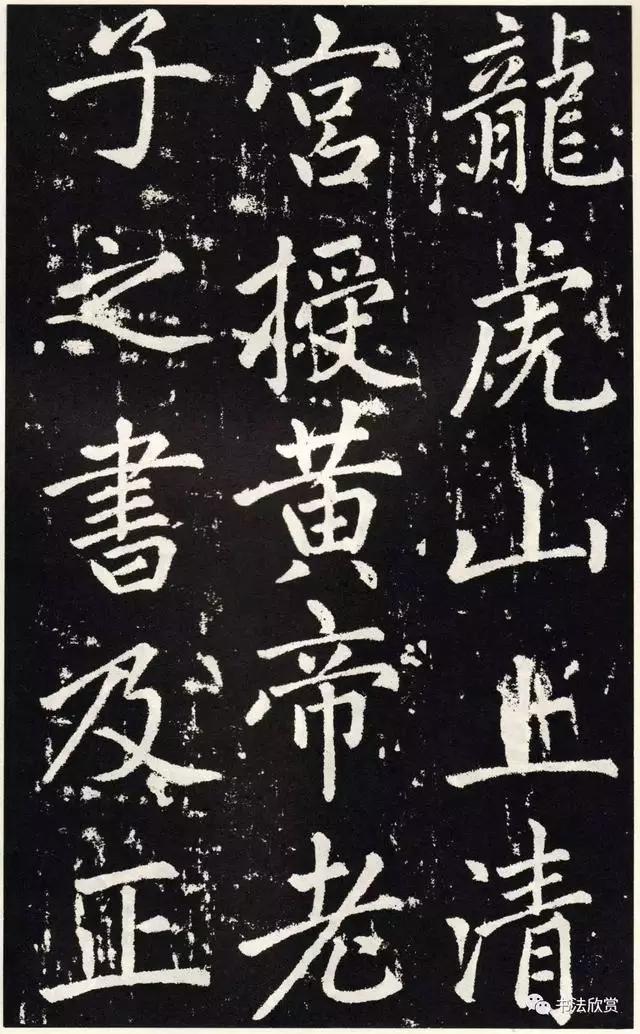 龍虎山上清
宮授黃帝老
子之書及正
书法欣赏